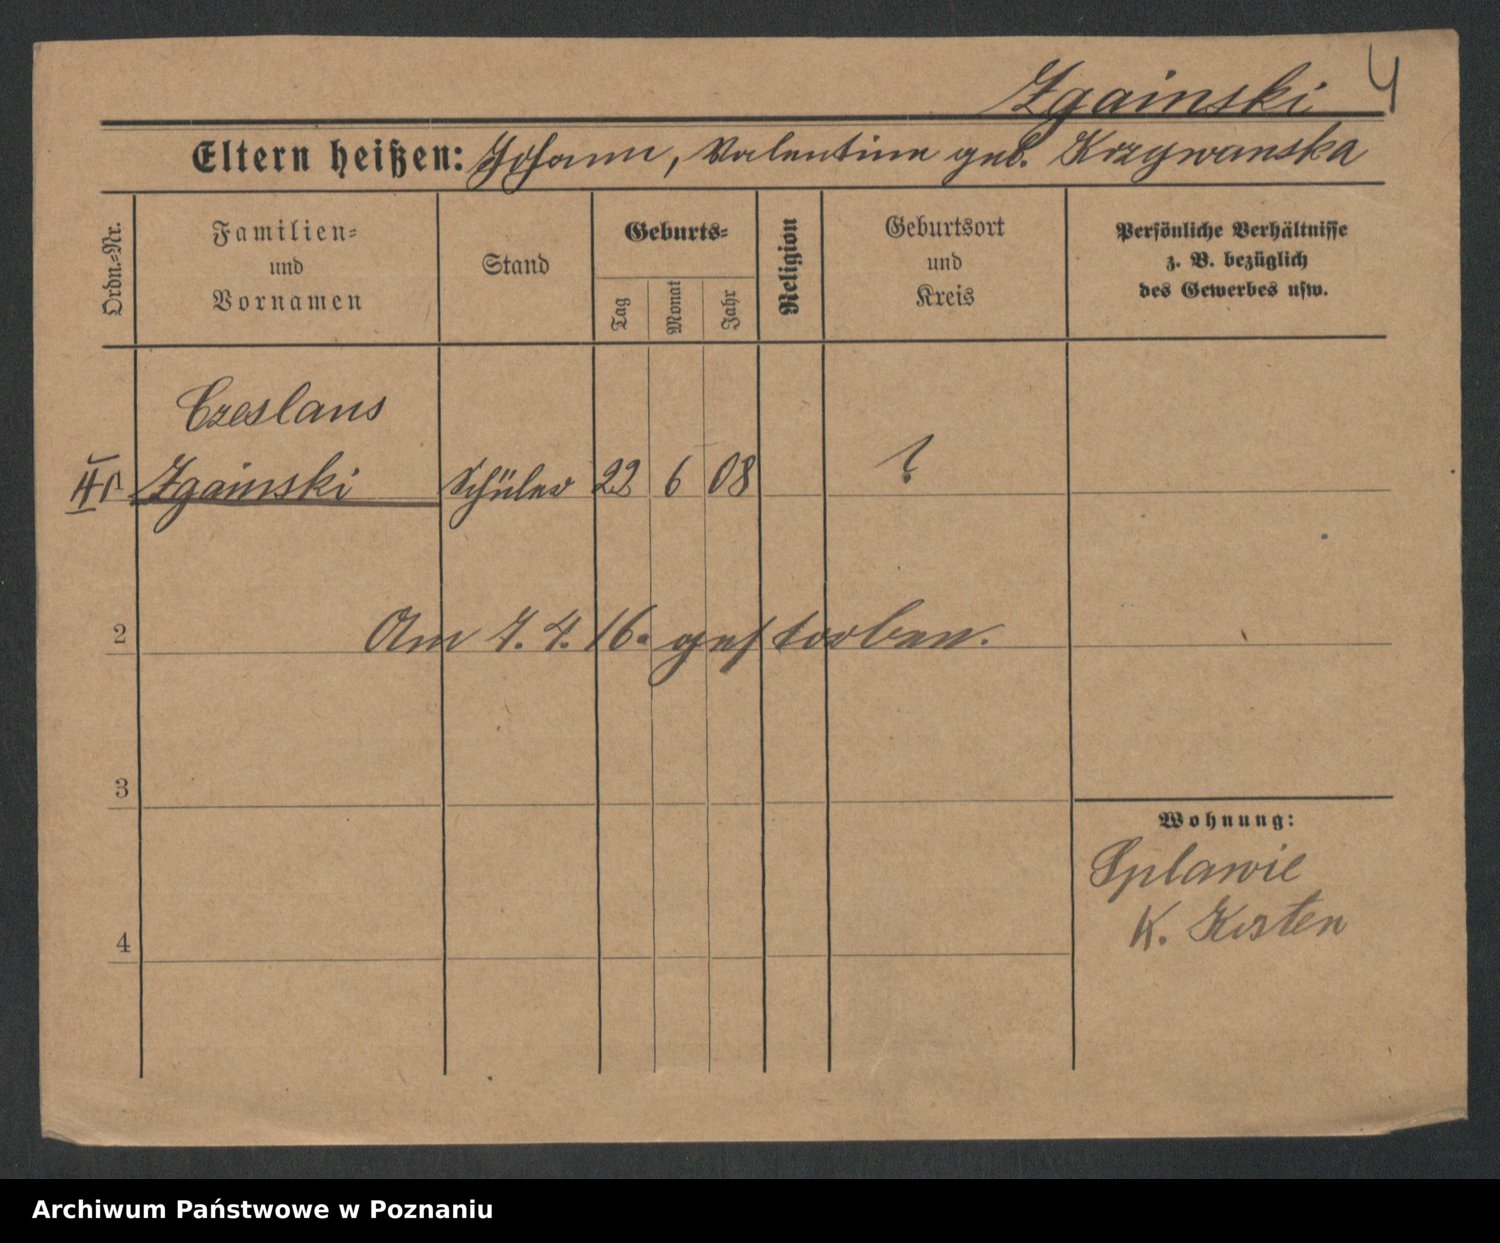 Zgainski 4
Eltern heißen: Johann, Valentine geb. Krzywanska
Ordn.-Nr.
Familien-
und
Vornamen
Stand
Geburts-
Tag
Monat
Jahr
Religion
Geburtsort
und
Kreis
Persönliche Verhältnisse
z. B. bezüglich
des Gewerbes usw.
Czeslaus
Zgainski Schüler 22 6 08 ?
2
Am 7. 4. 16. gestorben.
3
Wohnung:
Splawie
K. Kosten
4
Archiwum Państwowe w Poznaniu